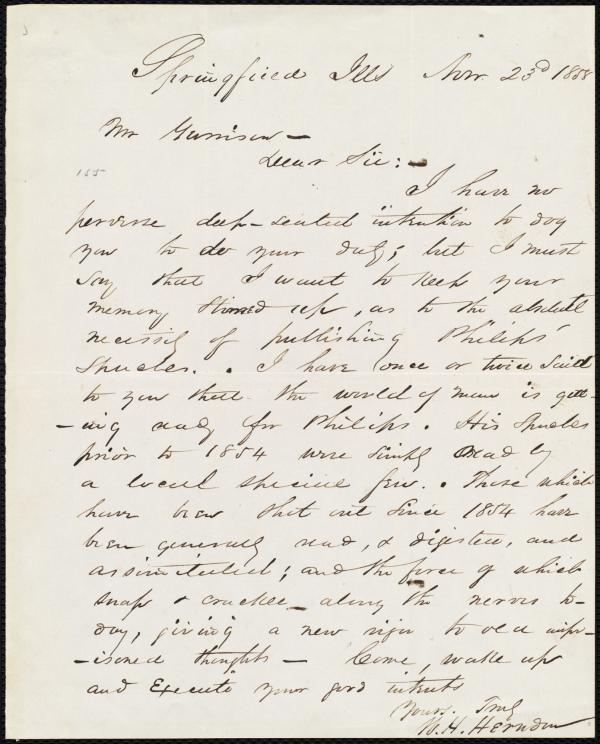 Springfield Ills Nov. 23d 1858
Mr Garrison —
Dear Sir: —
155
I have no
perverse deep-seated intention to dog
you to do your duty; but I must
say that I want to keep your
memory stirred up, as to the absolute
necessity of publishing Philips'
Speeches. . I have once or twice said
to you that the world of man is gett-
-ing ready for Philips. His Speeches
prior to 1854 were simply read by
a local special few. . Those which
have been shot out since 1854 have
been generally read, & digested, and
assimilated; and the force of which
snap & crackle along the nerves to-
day, giving a new vigor to old impr-
-isoned thoughts — Come, wake up
and Execute your good intents
Yours. Truly
W. H. Herndon